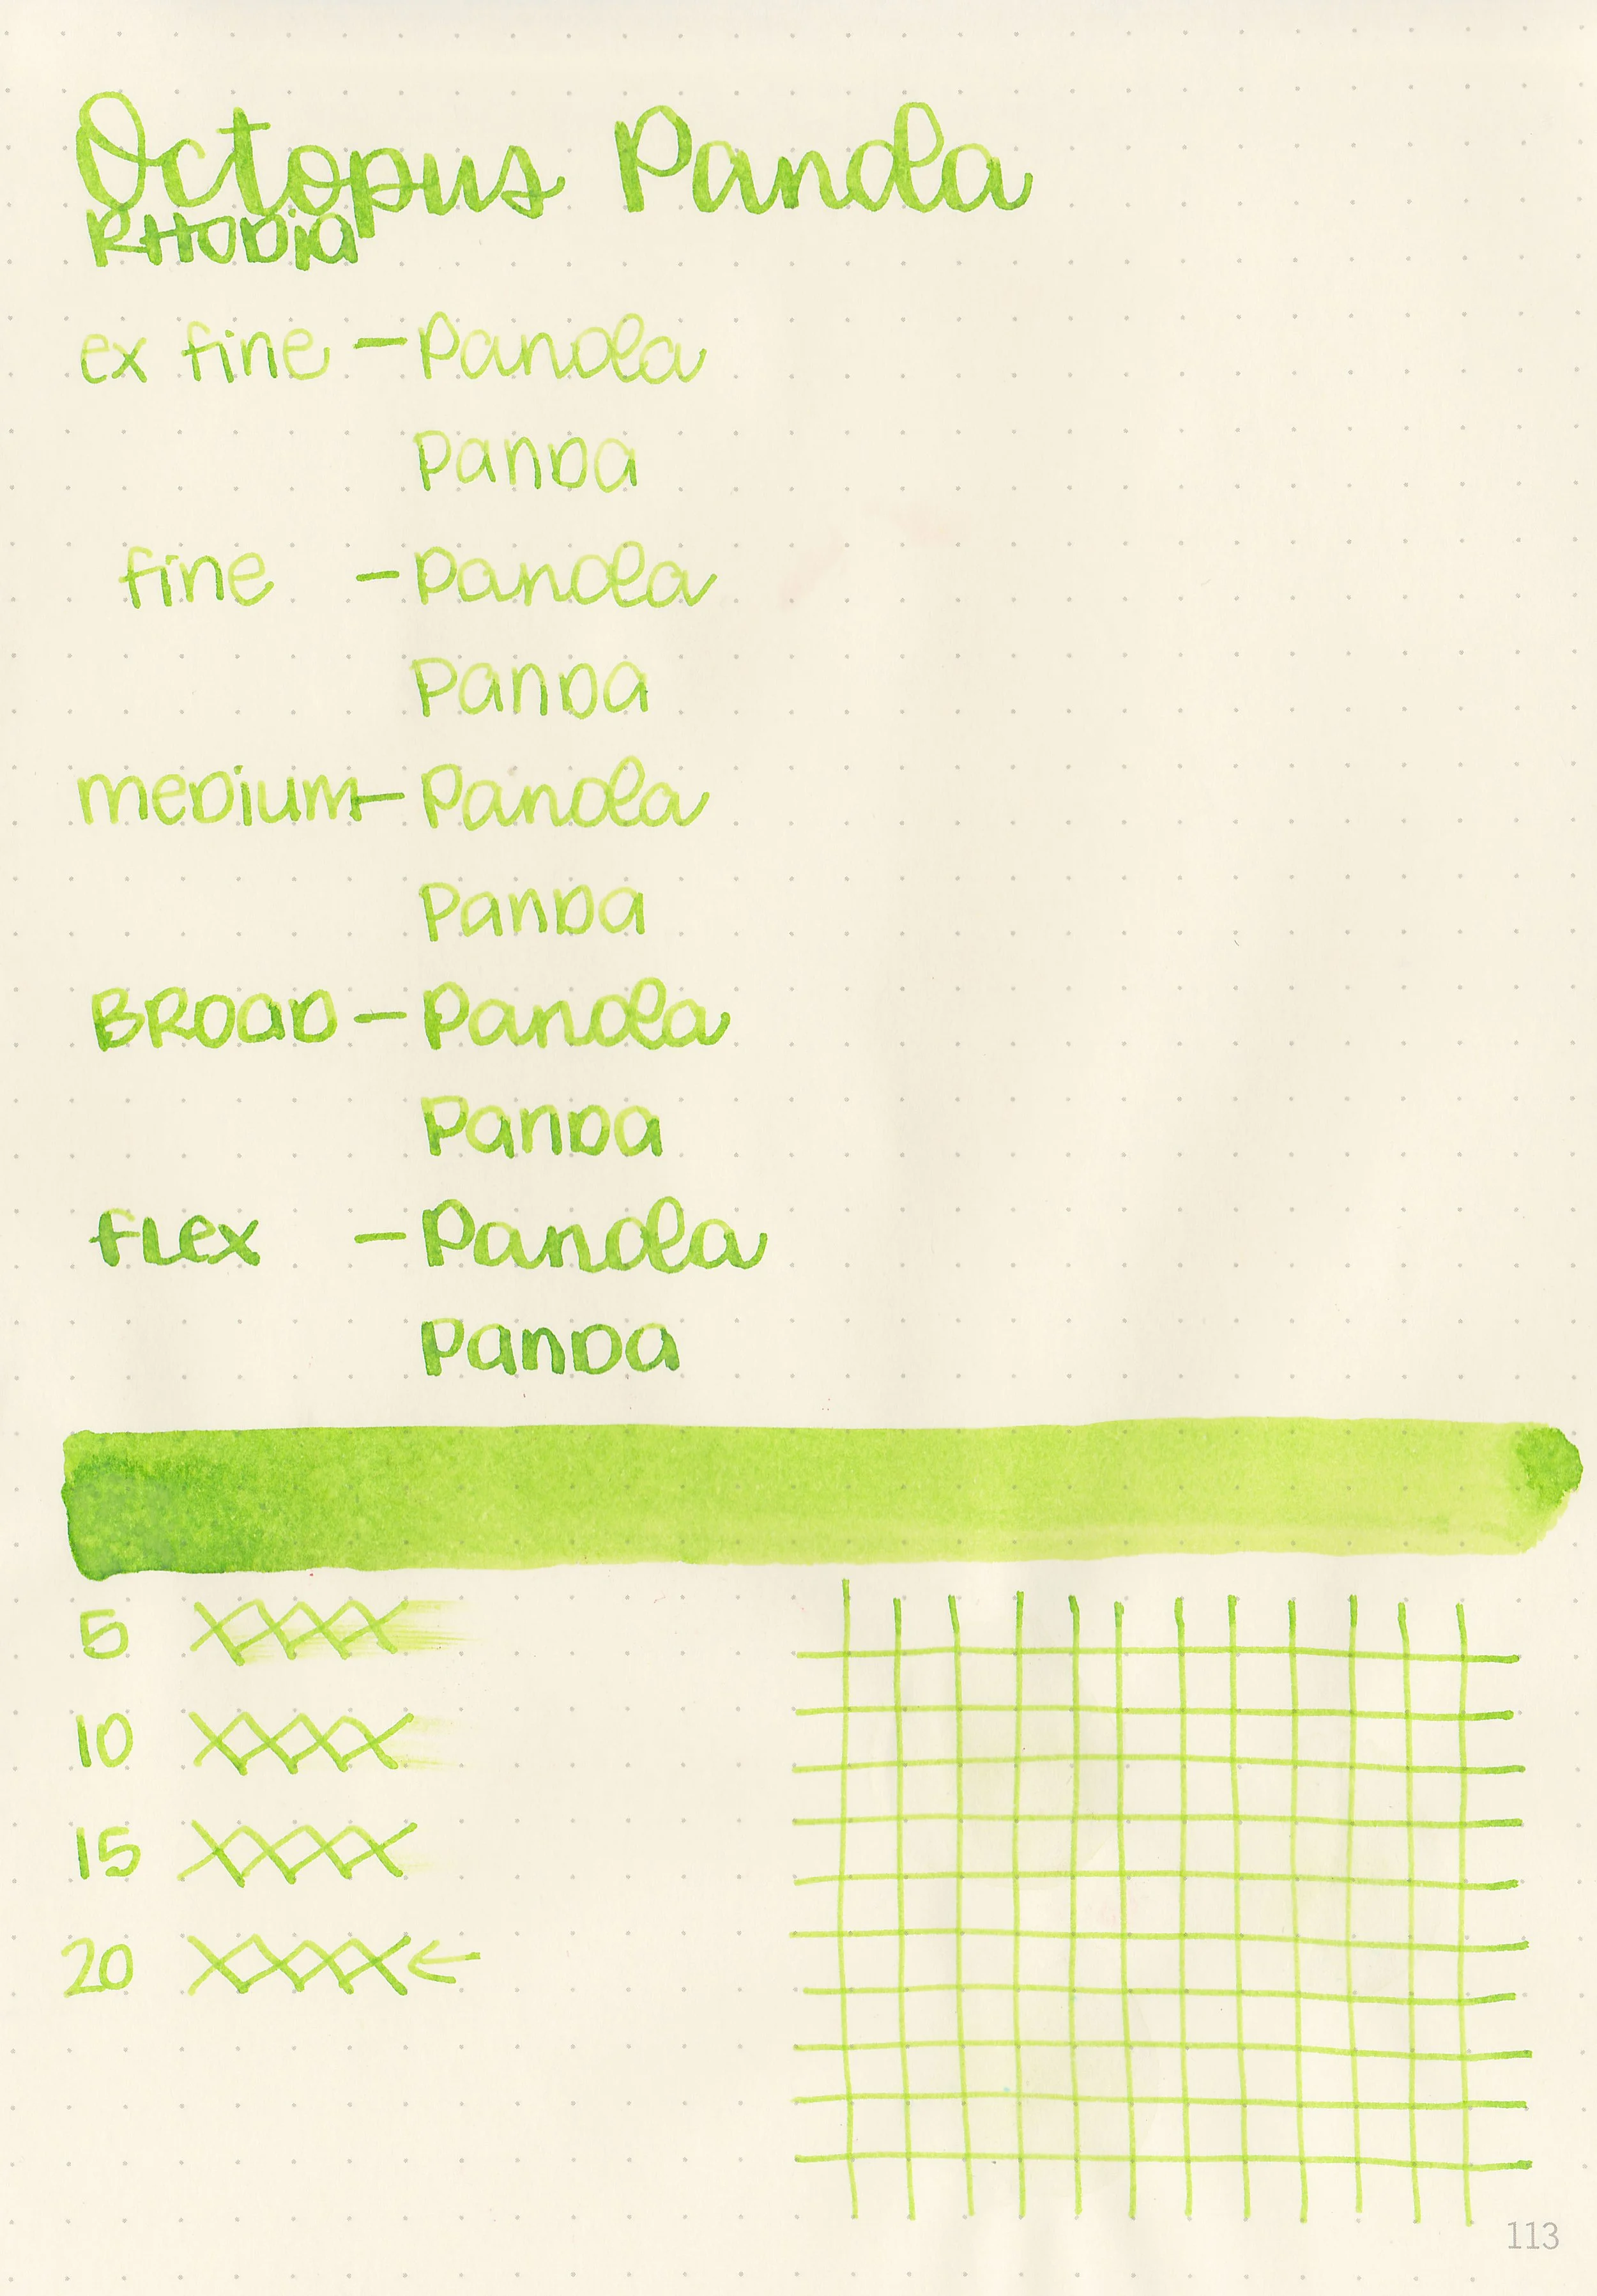 Octopus Panda
RHODia
ex fine - Panda
Panda
fine - Panda
Panda
meDium - Panda
Panda
BROaD - Panda
Panda
fLex - Panda
Panda
5 XXXX
10 XXXX
15 XXXX
20 XXXX ←
113